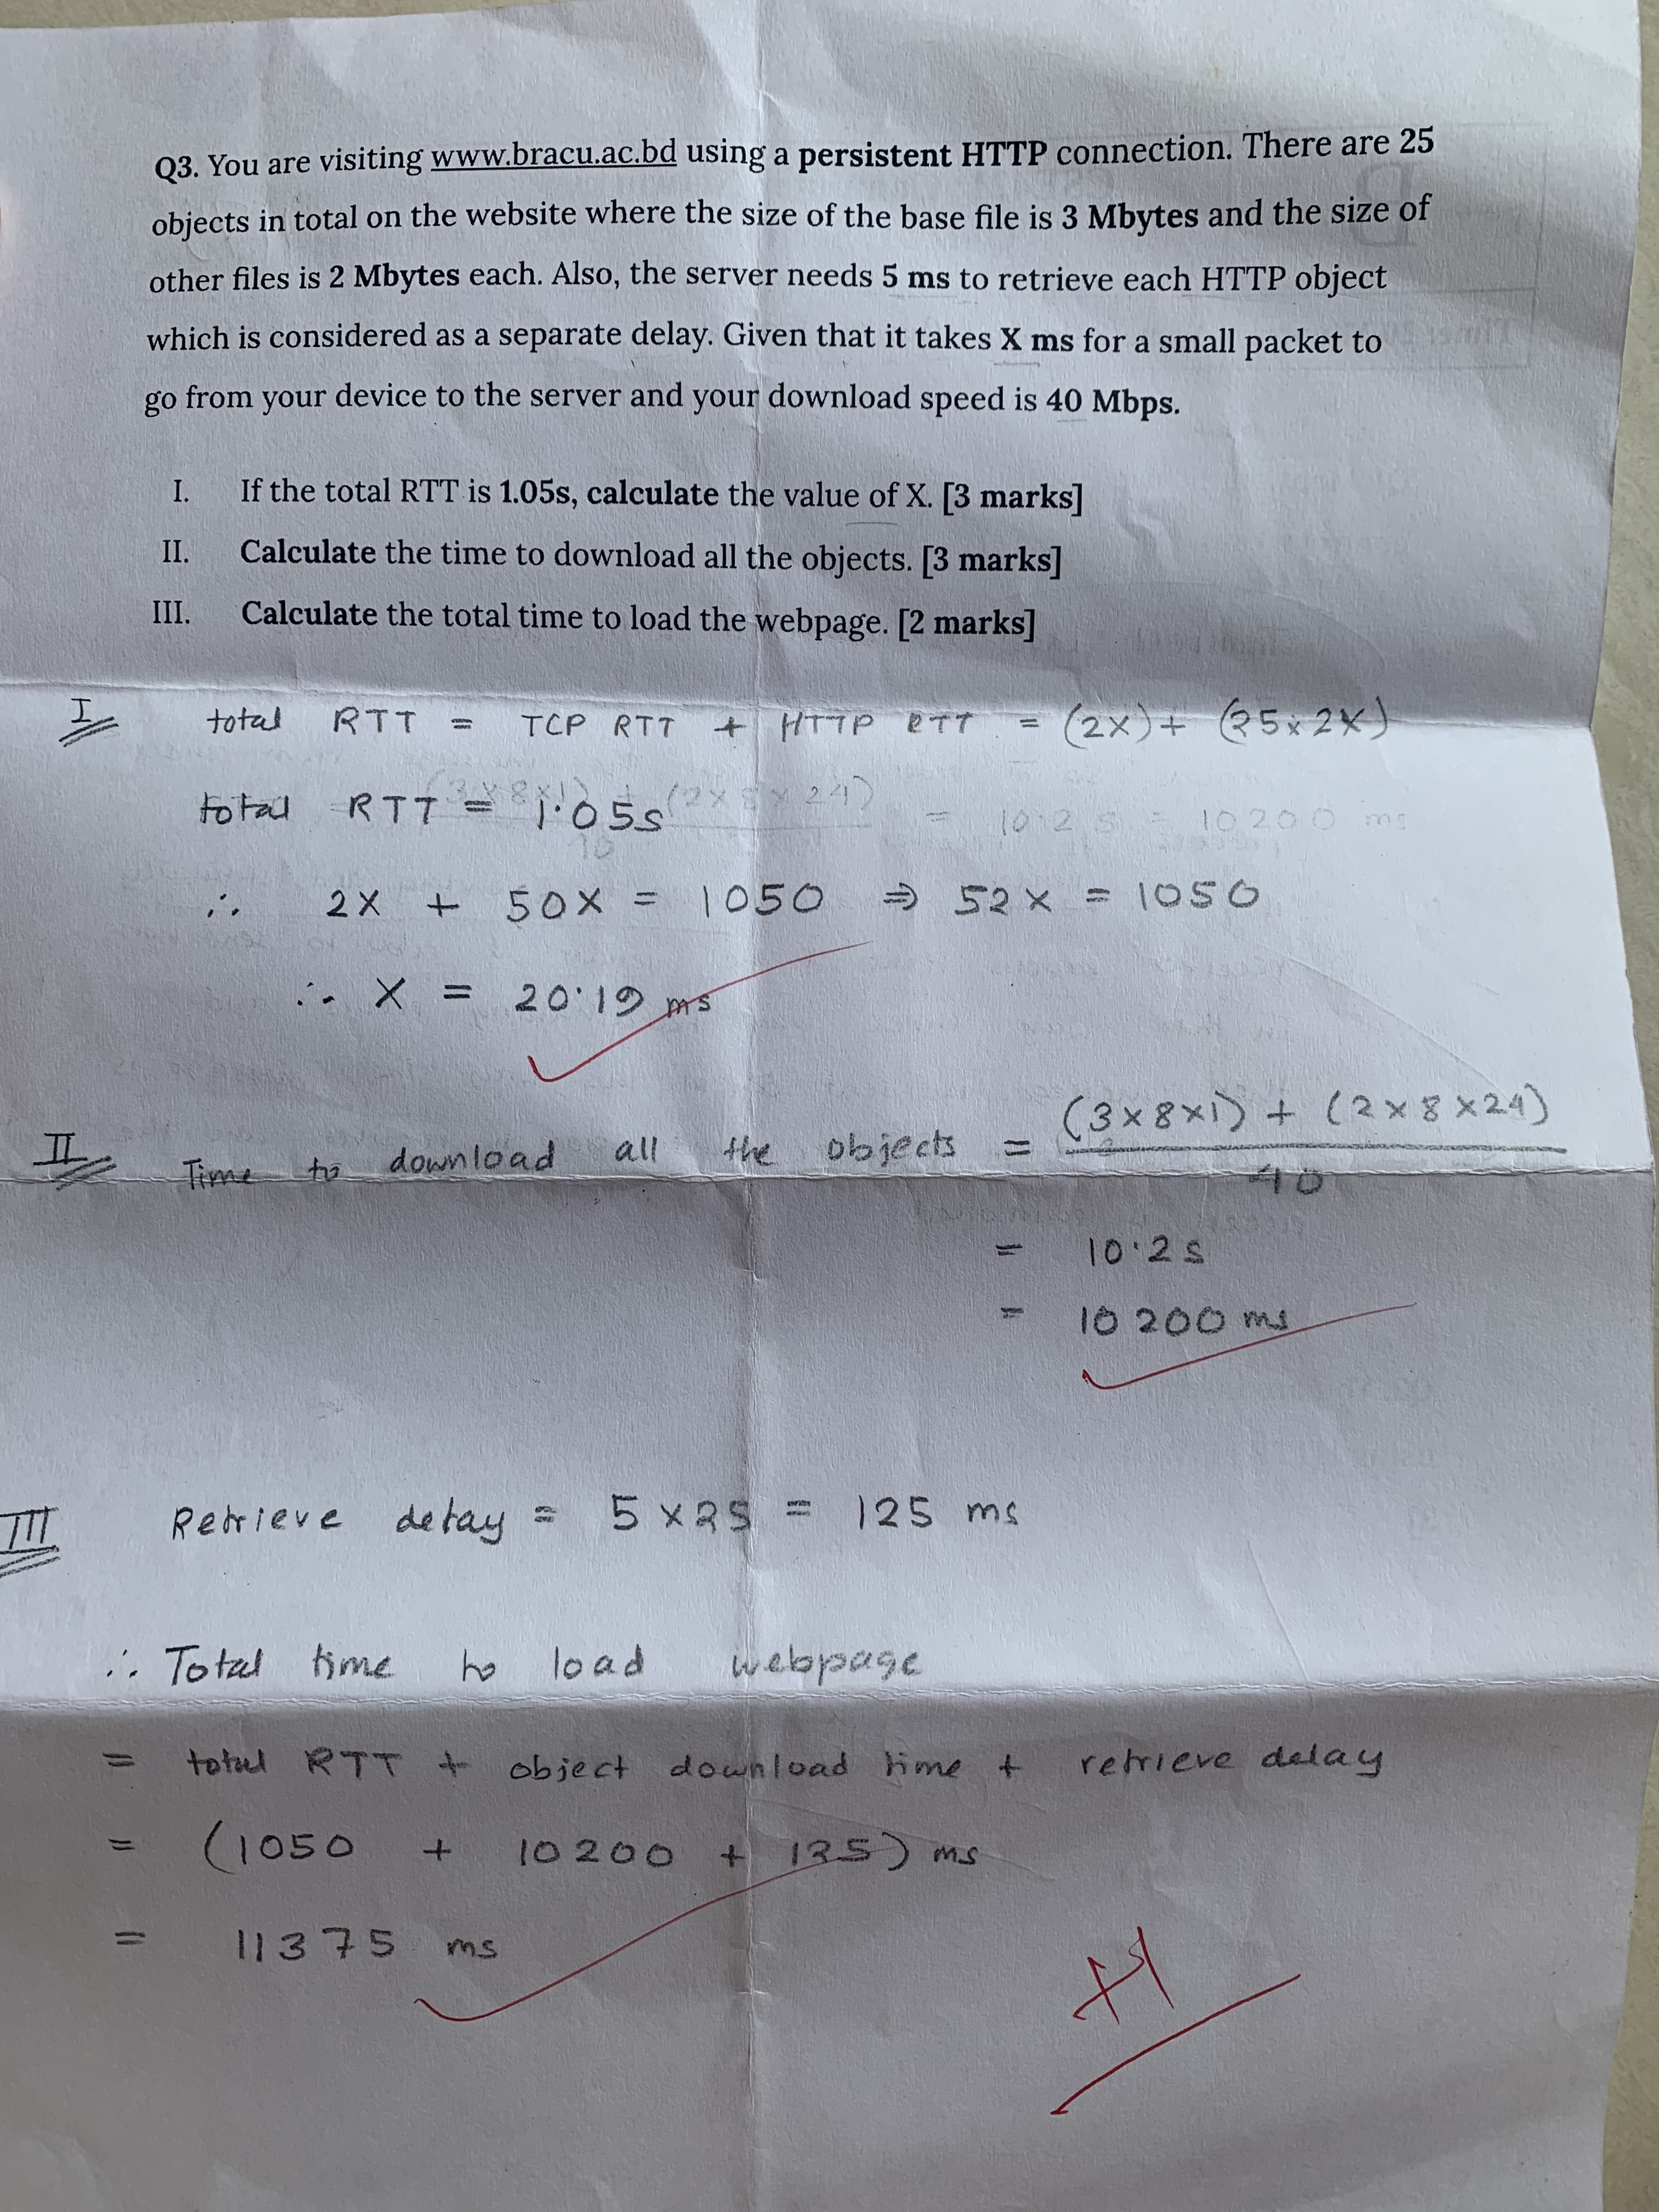 Q3. You are visiting www.bracu.ac.bd using a persistent HTTP connection. There are 25
objects in total on the website where the size of the base file is 3 Mbytes and the size of
other files is 2 Mbytes each. Also, the server needs 5 ms to retrieve each HTTP object
which is considered as a separate delay. Given that it takes X ms for a small packet to
go from your device to the server and your download speed is 40 Mbps.
I. If the total RTT is 1.05s, calculate the value of X. [3 marks]
II. Calculate the time to download all the objects. [3 marks]
III. Calculate the total time to load the webpage. [2 marks]
I total RTT = TCP RTT + HTTP RTT = (2X) + (25 x 2X)
total RTT = 1.05s
∴ 2X + 50X = 1050 ⇒ 52X = 1050
∴ X = 20.19 ms
II Time to download all the objects = (3x8x1) + (2x8x24)
40
= 10.2s
= 10200 ms
III Retrieve delay = 5 x 25 = 125 ms
∴ Total time to load webpage
= total RTT + object download time + retrieve delay
= (1050 + 10200 + 125) ms
= 11375 ms